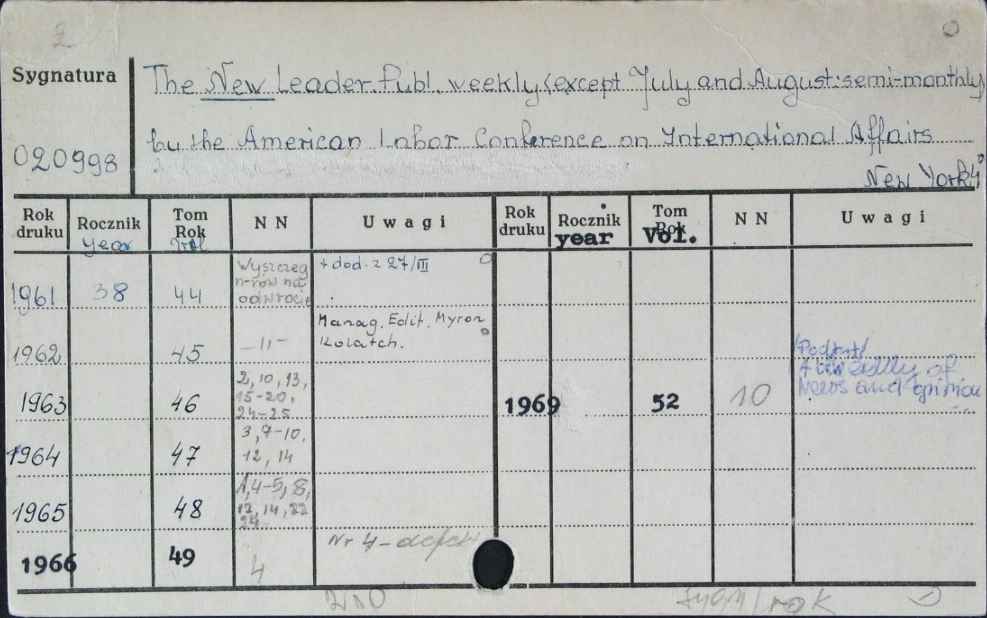 2
Sygnatura
020998
The New Leader. Publ. weekly (except July and August: semi-monthly)
by the American Labor Conference on International Affairs
New York
Rok druku Rocznik year Tom Rok Vol N N Uwagi Rok druku Rocznik year Tom Rok Vol. N N Uwagi
1961 38 44 Wyszczeg n-rów na odwrocie + dod. z 27/III
1962 45 -"- Manag. Edit. Myron Kolatch.
1963 46 2, 10, 13, 15-20, 24-25 1969 52 10 /Podtyt/ A weekly of News and opinion
1964 47 3, 7-10, 12, 14
1965 48 1, 4-5, 8, 12, 14, 22 24
1966 49 4 Nr 4 - defekt
rok